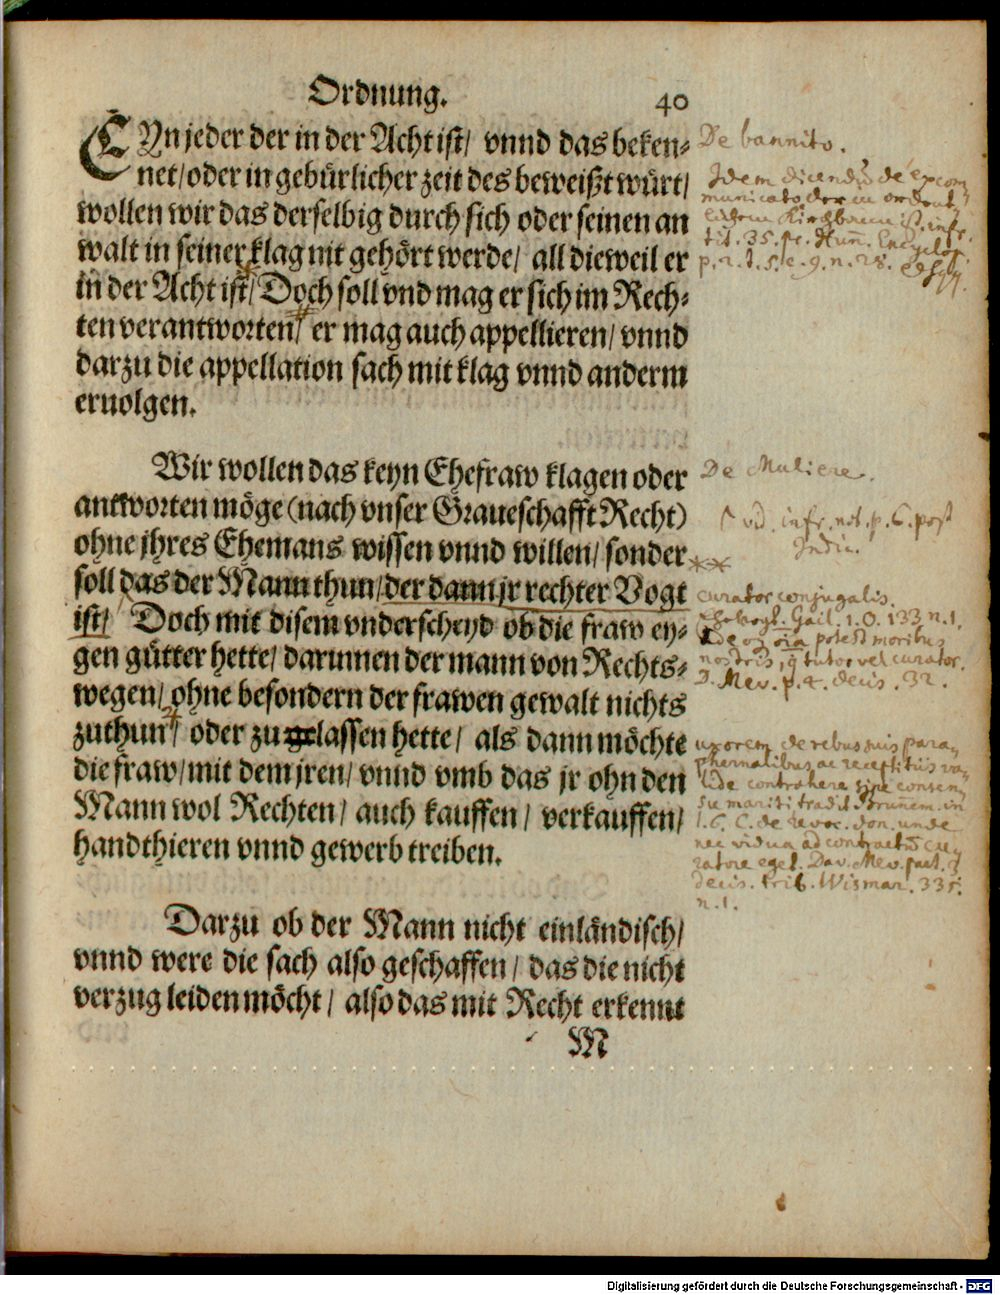 Ordnung. 40
EYn jeder der in der Acht ist/ vnnd das beken-
net/ oder in gebürlicher zeit des beweißt würt/
wollen wir das derselbig durch sich oder seinen an
walt in seiner klag nit gehört werde/ all dieweil er
in der Acht ist/ Doch soll vnd mag er sich im Rech-
ten verantworten/ er mag auch appellieren/ vnnd
darzu die appellation sach mit klag vnnd anderm
eruolgen.
Wir wollen das keyn Ehefraw klagen oder
antworten möge (nach vnser Graueschafft Recht)
ohne jhres Ehemans wissen vnnd willen/ sonder
soll das der Mann thun/ der dann jr rechter Vogt
ist/ Doch mit disem vnderscheyd ob die fraw ey-
gen gütter hette/ darumen der mann von Rechts-
wegen/ ohne besondern der frawen gewalt nichts
zuthun/ oder zu gelassen hette/ als dann möchte
die fraw/ mit dem jren/ vnnd vmb das jr ohn den
Mann wol Rechten/ auch kauffen/ verkauffen/
handthieren vnnd gewerb treiben.
Darzu ob der Mann nicht einländisch/
vnnd were die sach also geschaffen/ das die nicht
verzug leiden möcht/ also das mit Recht erkennt
M
De bannito.
Idem dicendū de excom
municato der in
Kirchbann ist. infr.
tit. 35. pr. Hun. Encyclop.
p. 2. t. 5. c. 9. n. 28.
De Muliere.
vd. infr. not. p. 6. post
Indic.
curator conjugalis.
Ehevogt. Gail. 1. O. 133 n. 1.
moribus
nostris, q̄ tutor vel curator.
D. Mev. p. 4. decis. 32.
uxorem de rebus suis para-
phernalibus ac receptitiis va-
lide contrahere sine consen-
su mariti tradit Brunnem. in
l. 6. C. de revoc. don. unde
nec vidua ad contractū cu-
ratore eget. Dav. Mev. part. 3
decis. trib. Wismar. 335.
n. 1.
Digitalisierung gefördert durch die Deutsche Forschungsgemeinschaft - DFG